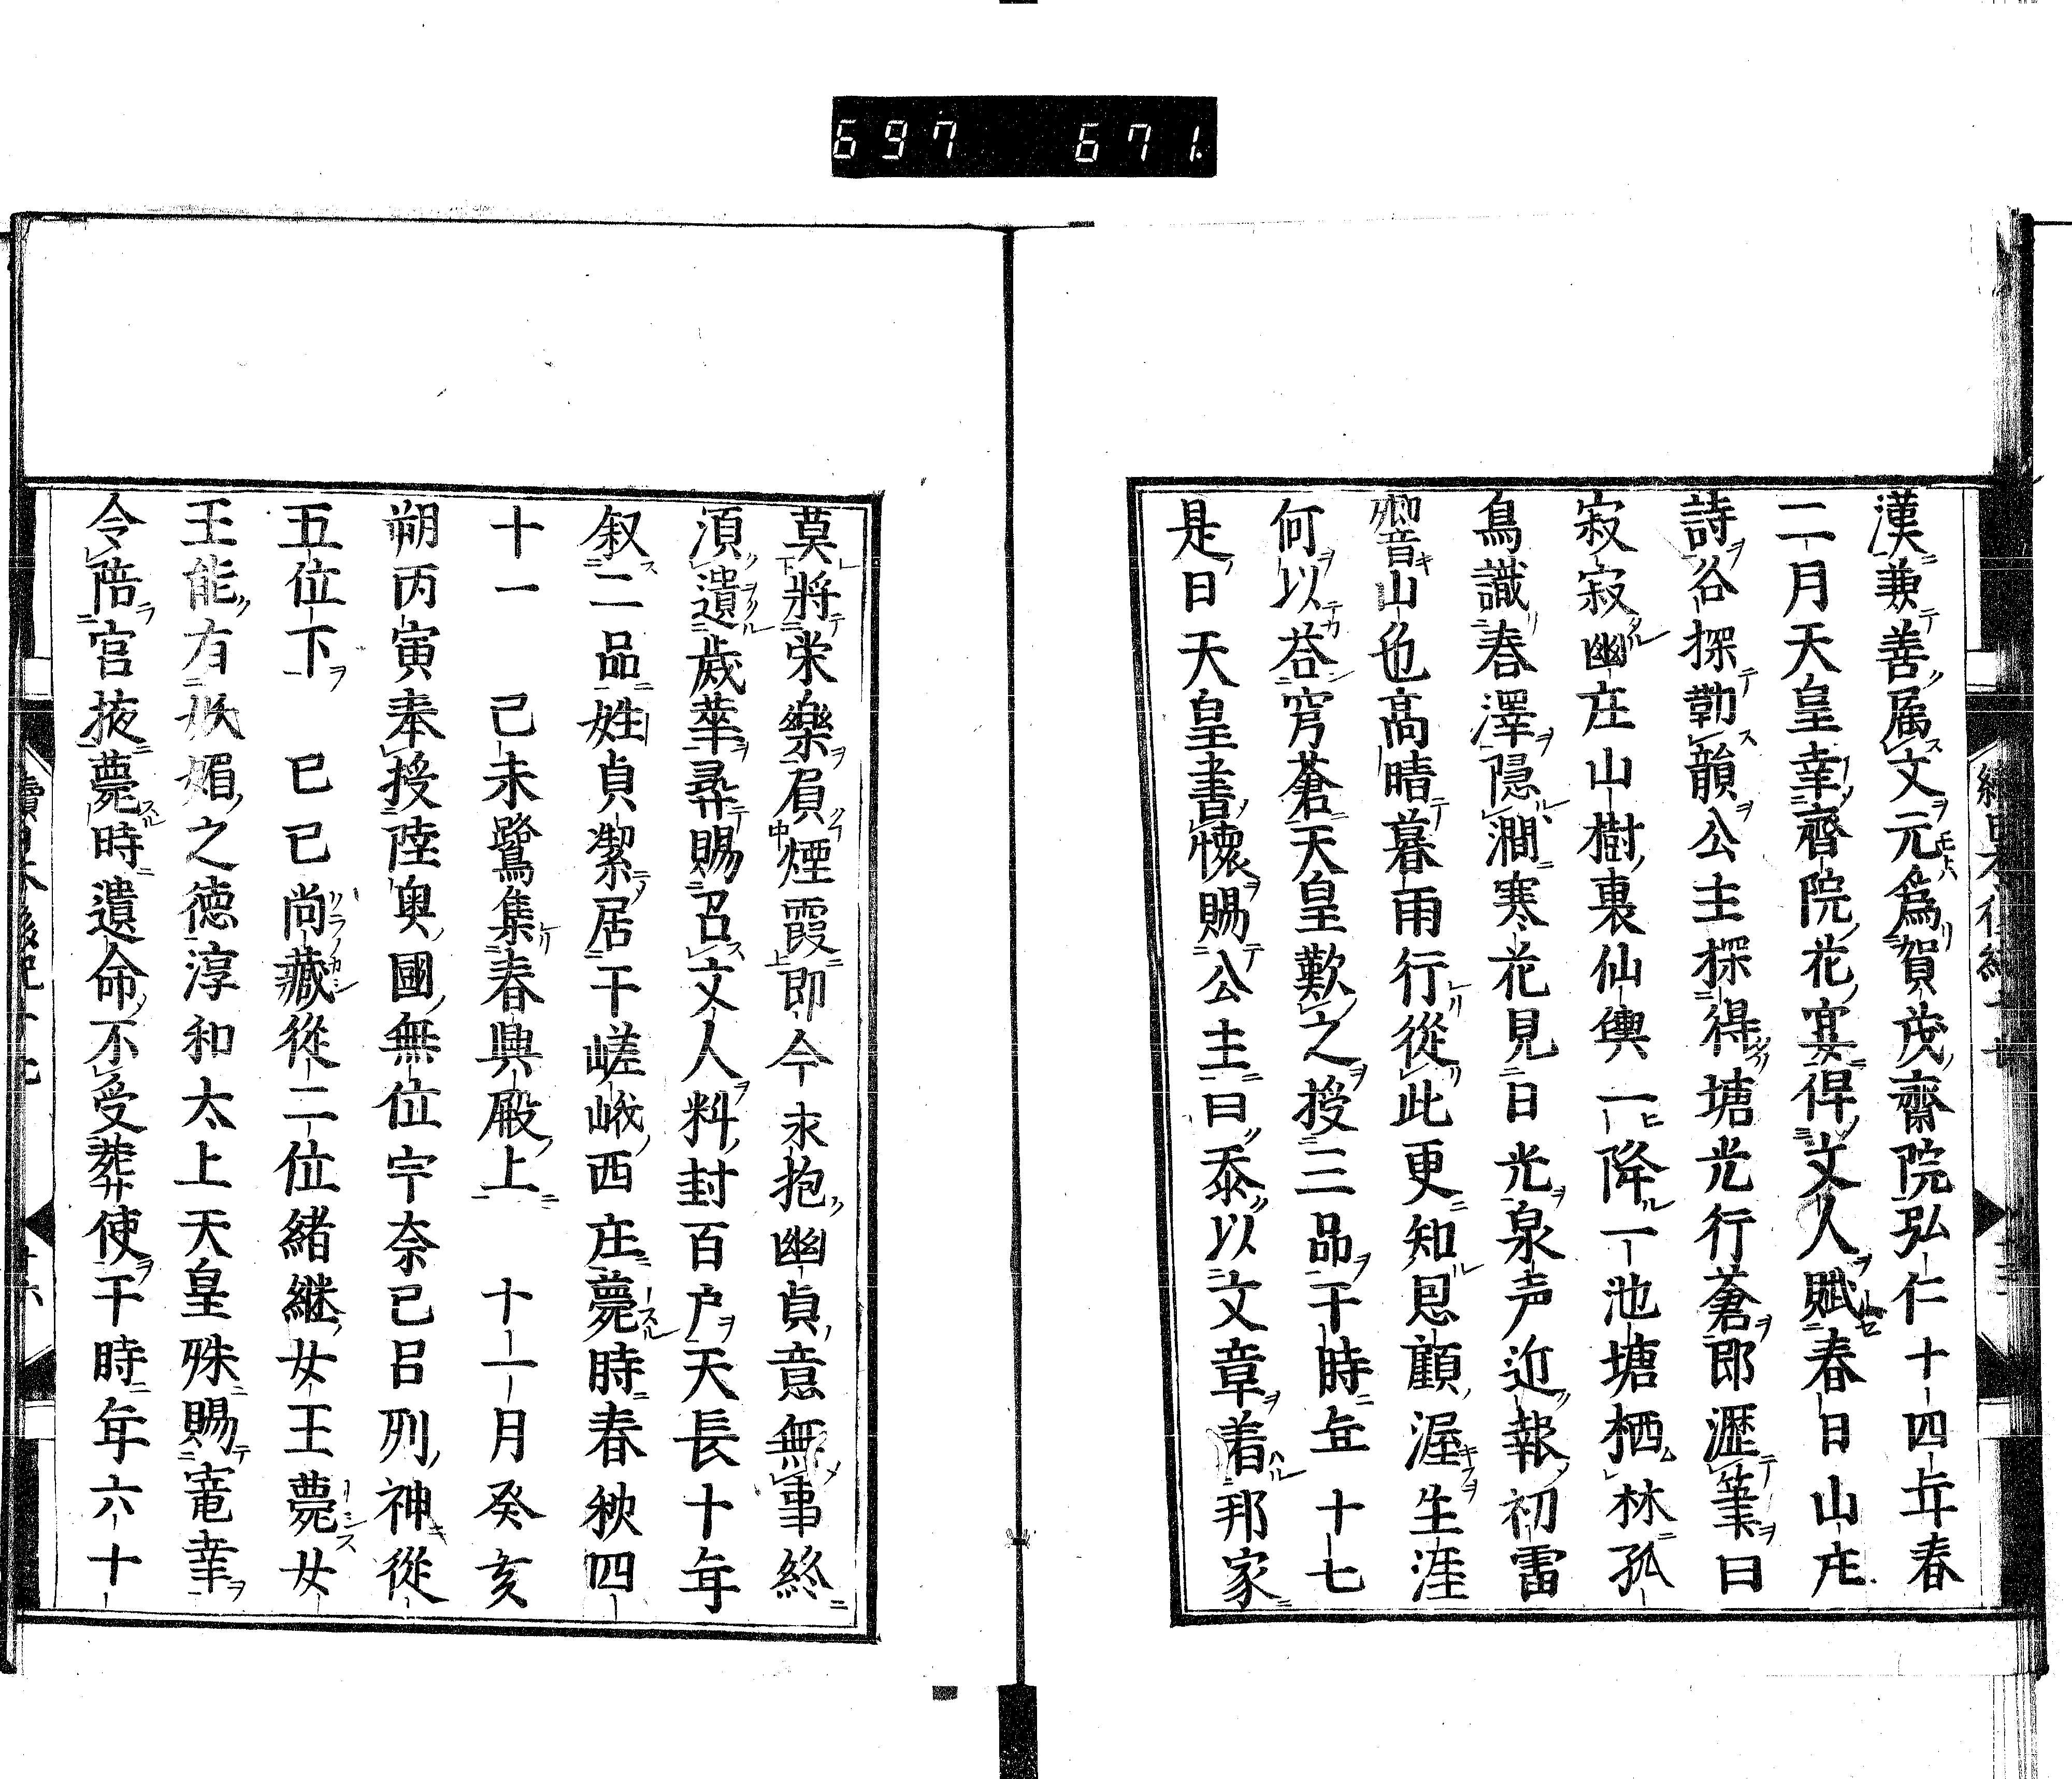 697 671.
漢兼善属文元爲賀茂齋院弘仁十四年春
二月天皇幸齋院花宴俾文人賦春日山庄
詩各探勒韻公主探得塘光行蒼即瀝筆曰
寂寂幽庄山樹裏仙輿一降一池塘栖林孤
鳥識春澤隠澗寒花見日光泉声近報初雷
響山色高晴暮雨行從此更知恩顧渥生涯
何以荅穹蒼天皇歎之授三品于時年十七
是日天皇書懷賜公主曰忝以文章着邦家
莫將栄樂負煙霞即今永抱幽貞意無事終
須遺歳華尋賜召文人料封百户天長十年
叙二品姓貞潔居于嵯峨西庄薨時春秋四
十一 己未鷺集春興殿上 十一月癸亥
朔丙寅奉授陸奥國無位宇奈己呂列神從
五位下 己巳尚藏從二位緒継女王薨女
王能有妖媚之德淳和太上天皇殊賜寵幸
令陪宮掖薨時遺命不受葬使于時年六十